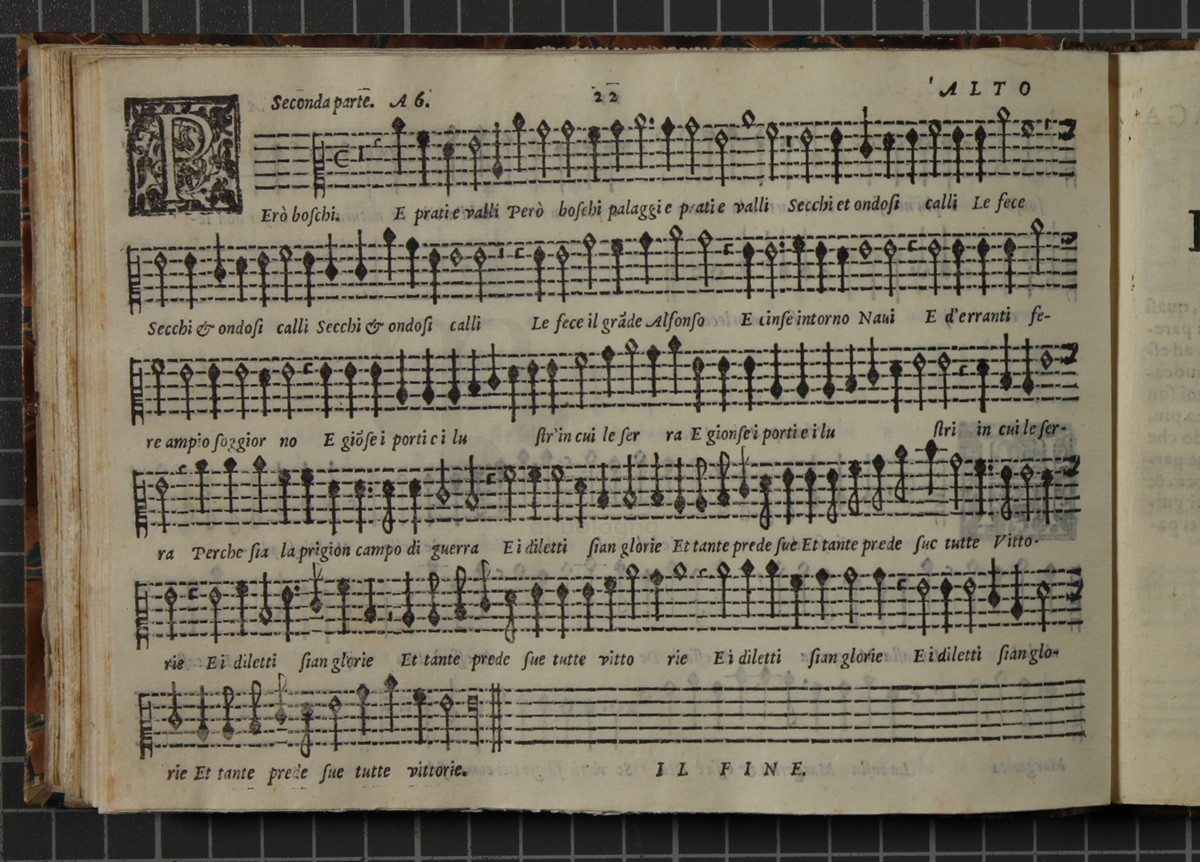 Seconda parte. A 6. 22 ALTO
P Erò boschi. E prati e valli Però boschi palaggi e prati e valli Secchi et ondosi calli Le fece
Secchi & ondosi calli Secchi & ondosi calli Le fece il grāde Alfonso E cinse intorno Naui E d'erranti fe-
re ampio soggior no E giōse i porti e i lu str'in cui le ser ra E gionse i porti e i lu stri in cui le ser-
ra Perche sia la prigion campo di guerra E i diletti sian glorie Et tante prede sue Et tante prede sue tutte Vitto-
rie E i diletti sian glorie Et tante prede sue tutte vitto rie E i diletti sian glorie E i diletti sian glo-
rie Et tante prede sue tutte vittorie. IL FINE.